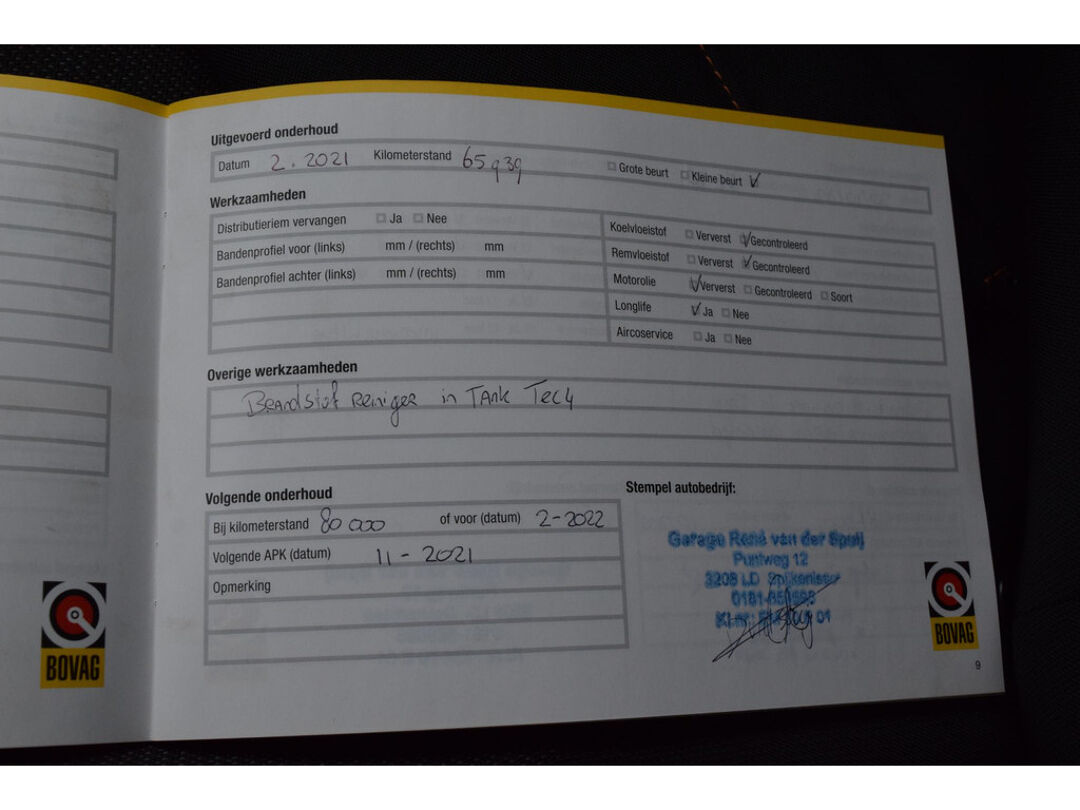 Uitgevoerd onderhoud
Datum 2.2021 Kilometerstand 65939 Grote beurt Kleine beurt
Werkzaamheden
Distributieriem vervangen Ja Nee
Bandenprofiel voor (links) mm / (rechts) mm
Bandenprofiel achter (links) mm / (rechts) mm
Koelvloeistof Ververst Gecontroleerd
Remvloeistof Ververst Gecontroleerd
Motorolie Ververst Gecontroleerd Soort
Longlife Ja Nee
Aircoservice Ja Nee
Overige werkzaamheden
Brandstof Reiniger in TAnk Tec4
Volgende onderhoud
Bij kilometerstand 80 000 of voor (datum) 2-2022
Volgende APK (datum) 11 - 2021
Opmerking
Stempel autobedrijf:
Garage René van der Spuij
Puntweg 12
3208 LD Spijkenisse
BOVAG
BOVAG
9